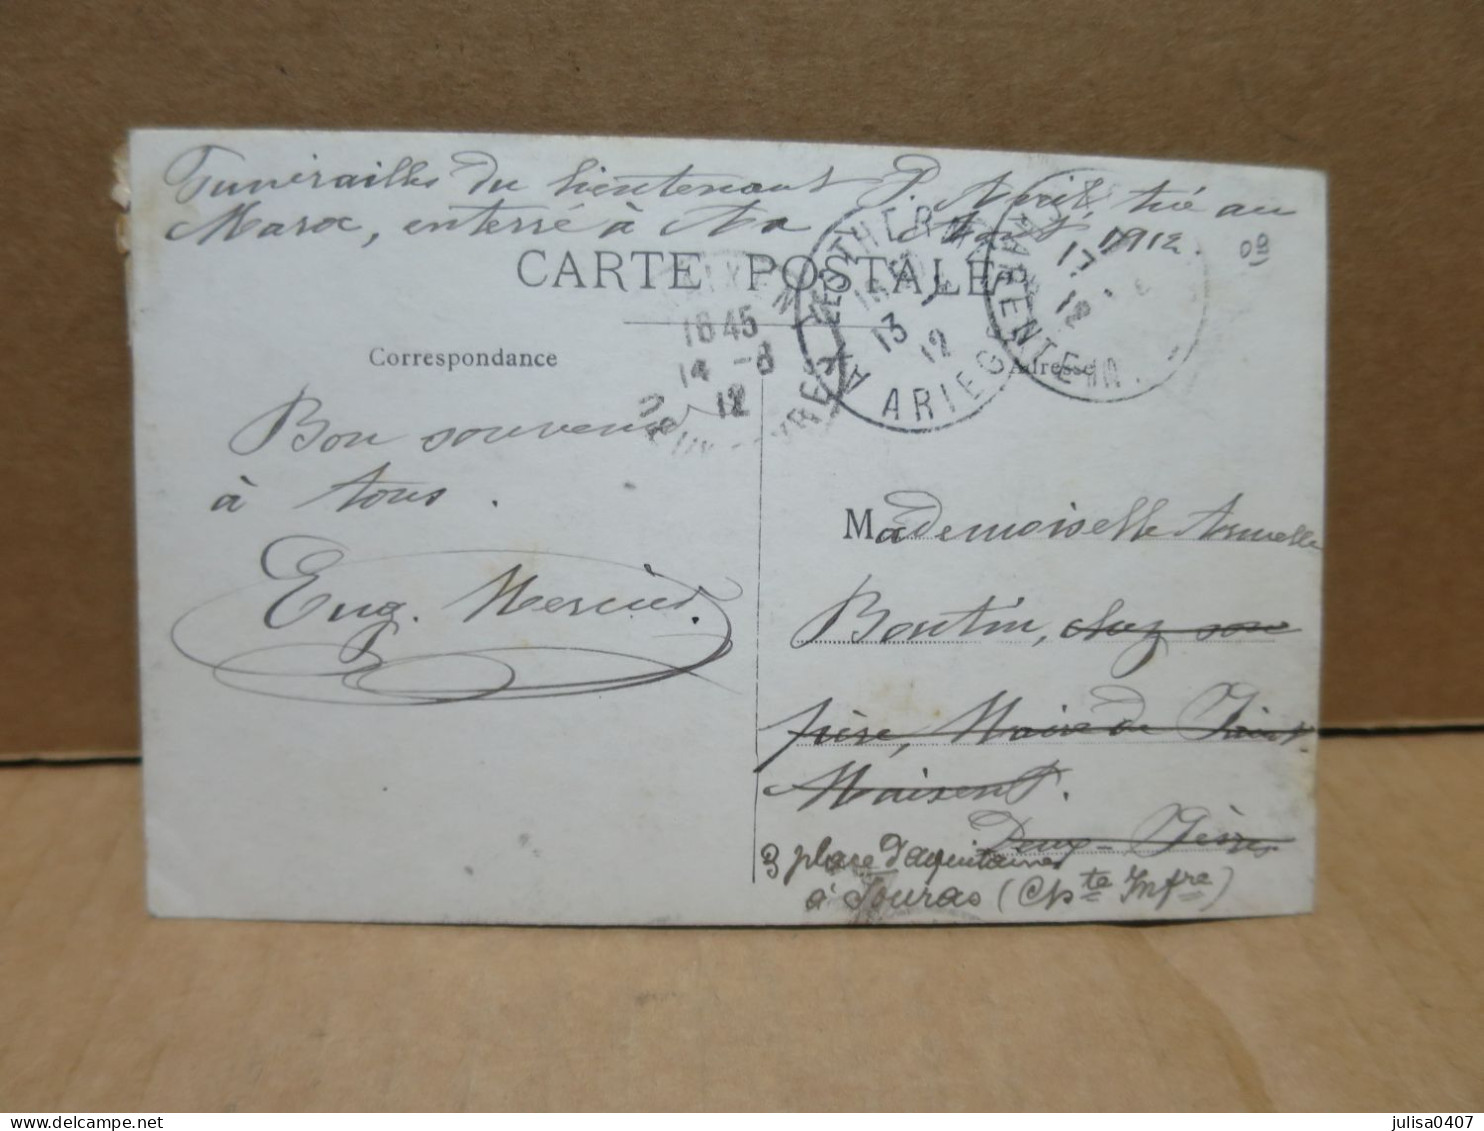 Funérailles du lieutenant P. Avril, tué au
Maroc, enterré à Ax Août 1912.
CARTE POSTALE
Correspondance
Adresse
18 45
14 - 8
12
AX-LES-THERMES
13
12
ARIEGE
17
12
CHARENTE INF
Bon souvenir
à tous.
Eug. Mercier.
Mademoiselle Armelle
Boutin, chez son
frère, Maire de Saint
Maixent.
Deux-Sèvres
3 place d'aquitaine
à Fouras (Chte Infre)
julisa0407